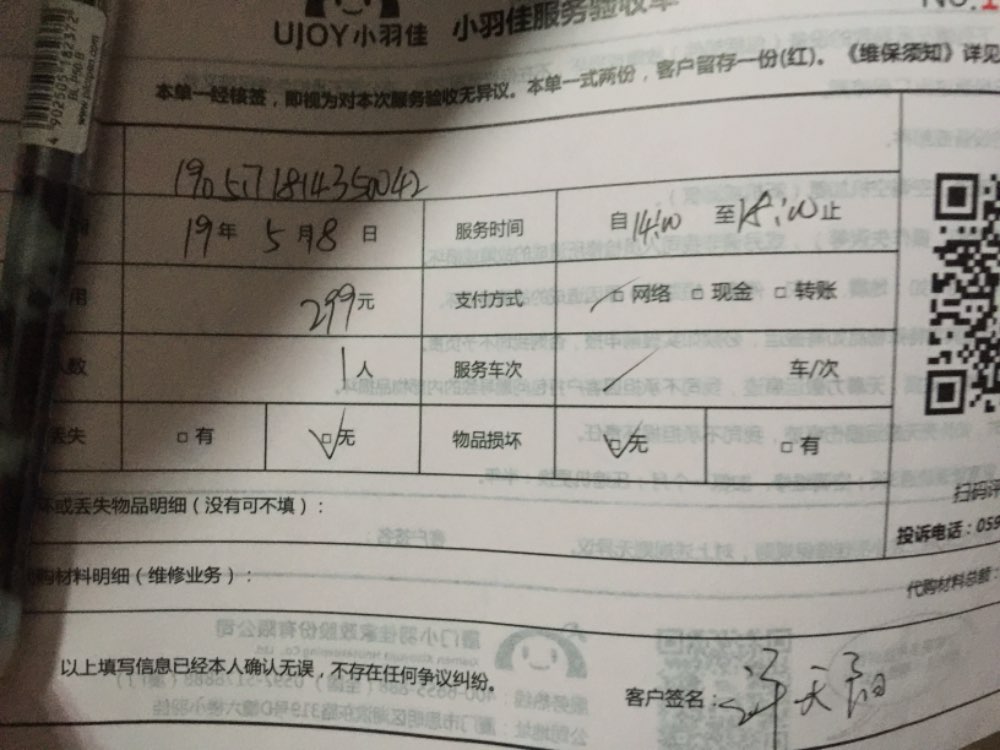 UJOY小羽佳 小羽佳服务验收单
NO.1
本单一经核签，即视为对本次服务验收无异议。本单一式两份，客户留存一份(红)。《维保须知》详见
4 902505 182372
BL-DNG-B
www.pilotpen.com
1905171814350042
19年 5月8日 服务时间 自14:00 至18:00止
用 299元 支付方式 网络 现金 转账
人数 1人 服务车次 车/次
丢失 有 无 物品损坏 无 有
坏或丢失物品明细（没有可不填）：
扫码评
投诉电话：059
购材料明细（维修业务）：
代购材料总额：
以上填写信息已经本人确认无误，不存在任何争议纠纷。
客户签名：